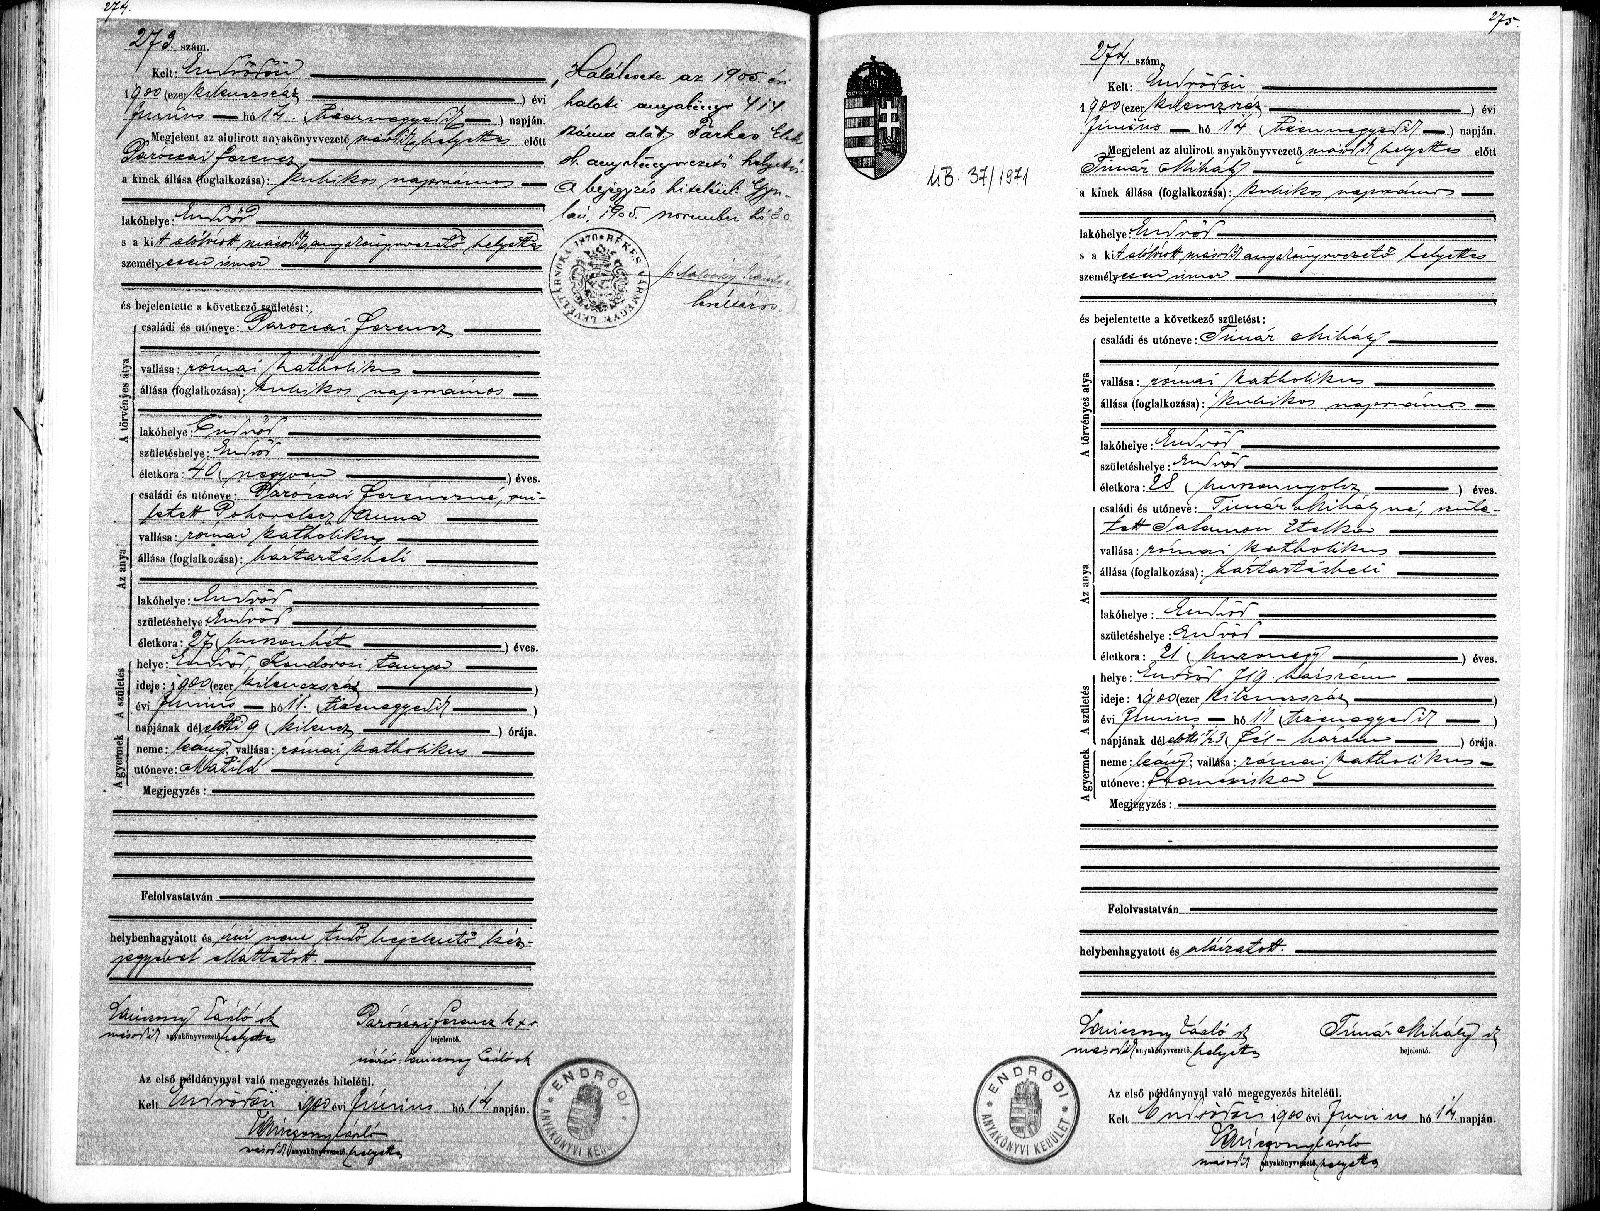 274.
273. szám.
Kelt: Endrődön
1900 (ezer kilenczszáz) évi
Június hó 14. (tizennegyedik) napján.
Megjelent az alulirott anyakönyvvezető másodikhelyettes előtt
Paróczai Ferencz
a kinek állása (foglalkozása): kubikos napszámos
lakóhelye: Endrőd
s a kit alólirott másodikanyakönyvvezető helyettes
személyesen ismer
és bejelentette a következő születést:
A törvényes atya
családi és utóneve: Paróczai Ferencz
vallása: római katholikus
állása (foglalkozása): kubikos napszámos
lakóhelye: Endrőd
születéshelye: Endrőd
életkora: 40 (negyven) éves.
Az anya
családi és utóneve: Paróczai Ferenczné, szü-
letett Pohovelecz Anna
vallása: római katholikus
állása (foglalkozása): háztartásbeli
lakóhelye: Endrőd
születéshelye: Endrőd
életkora: 27 (huszonhét) éves.
A születés
helye: Endrőd Kondorosi tanya
ideje: 1900 (ezer kilenczszáz)
évi Június hó 11. (tizenegyedik)
napjának délelőtti 9 (kilencz) órája.
A gyermek
neme: leány; vallása: római katholikus
utóneve: Matild
Megjegyzés:
Felolvastatván
helybenhagyatott és irni nem tudó bejelentő kéz-
jegyével elláttatott.
László sk
másodikanyakönyvvezetőhelyettes
Paróczai Ferencz
bejelentő.
Az első példánynyal való megegyezés hiteléül.
Kelt Endrődön 1900 évi Június hó 14 napján.
másodikanyakönyvvezetőhelyettes
ENDRŐDI ANYAKÖNYVI KERÜLET
Halálesete az 1905. évi
haláli anyakönyv 414
száma alatt Farkas Elek
h. anyakönyvvezető helyettes
A bejegyzés hiteléül: Gyu-
lán, 1905. november hó 30.
BÉKÉS VÁRMEGYE LEVÉLTÁRNOKA 1870
levéltáros
275.
274. szám.
MB. 37/1971
Kelt: Endrődön
1900 (ezer kilenczszáz) évi
Június hó 14 (tizennegyedik) napján.
Megjelent az alulirott anyakönyvvezető másodikhelyettes előtt
Timár Mihály
a kinek állása (foglalkozása): kubikos napszámos
lakóhelye Endrőd
s a kit alólirott másodikanyakönyvvezető helyettes
személyesen ismer
és bejelentette a következő születést:
A törvényes atya
családi és utóneve: Timár Mihály
vallása: római katholikus
állása (foglalkozása): kubikos napszámos
lakóhelye: Endrőd
születéshelye: Endrőd
életkora: 28 (huszonnyolcz) éves.
Az anya
családi és utóneve: Timár Mihályné, szüle-
tett Salamon Etelka
vallása: római katholikus
állása (foglalkozása): háztartásbeli
lakóhelye: Endrőd
születéshelye: Endrőd
életkora: 21 (huszonegy) éves.
A születés
helye: Endrőd 719 házszám
ideje: 1900 (ezer kilenczszáz)
évi Június hó 11 (tizenegyedik)
napjának délelőtti 1/23 (fél-három) órája.
A gyermek
neme: leány; vallása: római katholikus
utóneve: Francziska
Megjegyzés:
Felolvastatván
helybenhagyatott és aláiratott.
László sk
másodikanyakönyvvezetőhelyettes
Timár Mihály sk
bejelentő.
Az első példánynyal való megegyezés hiteléül.
Kelt Endrődön 1900 évi Június hó 14 napján.
másodikanyakönyvvezetőhelyettes
ENDRŐDI ANYAKÖNYVI KERÜLET